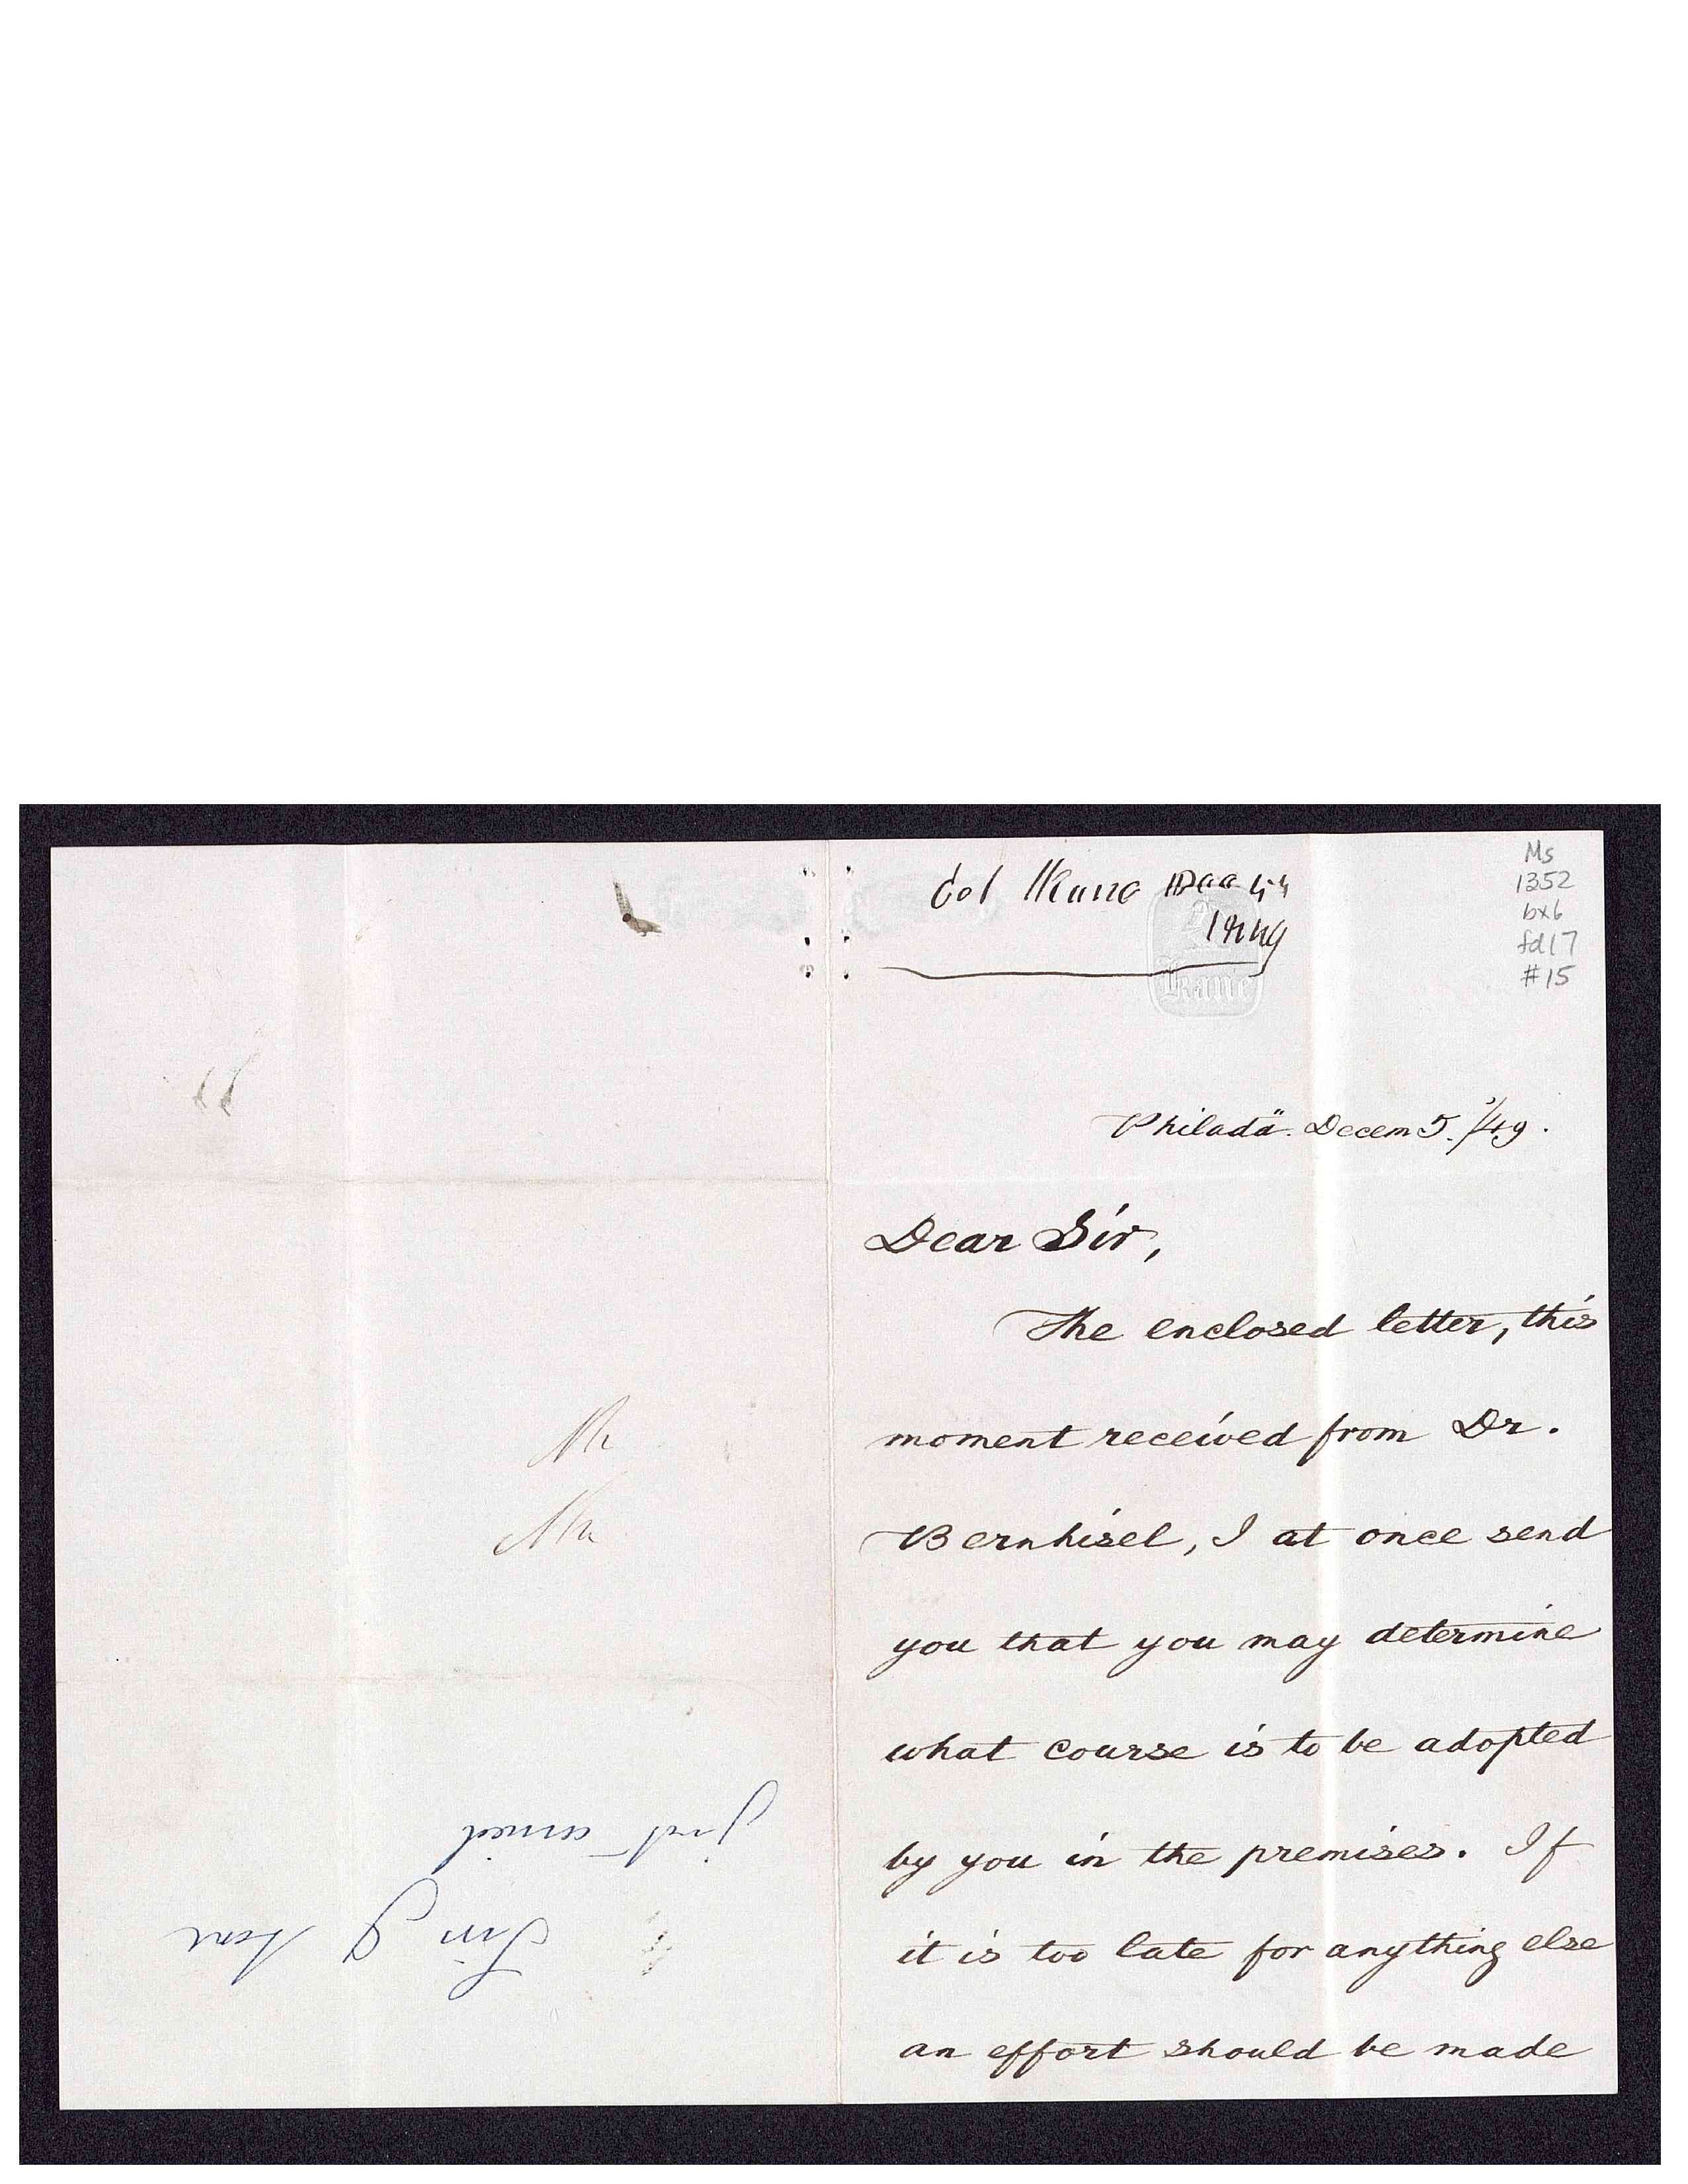 Col Kane Dec 5th
1849
Kane
Ms
1352
bx6
fd17
#15
Philadª. Decem 5. /49.
Dear Sir,
The enclosed letter, this
moment received from Dr.
Bernhisel, I at once send
you that you may determine
what course is to be adopted
by you in the premises. If
it is too late for anything else
an effort should be made
Sir I have
just